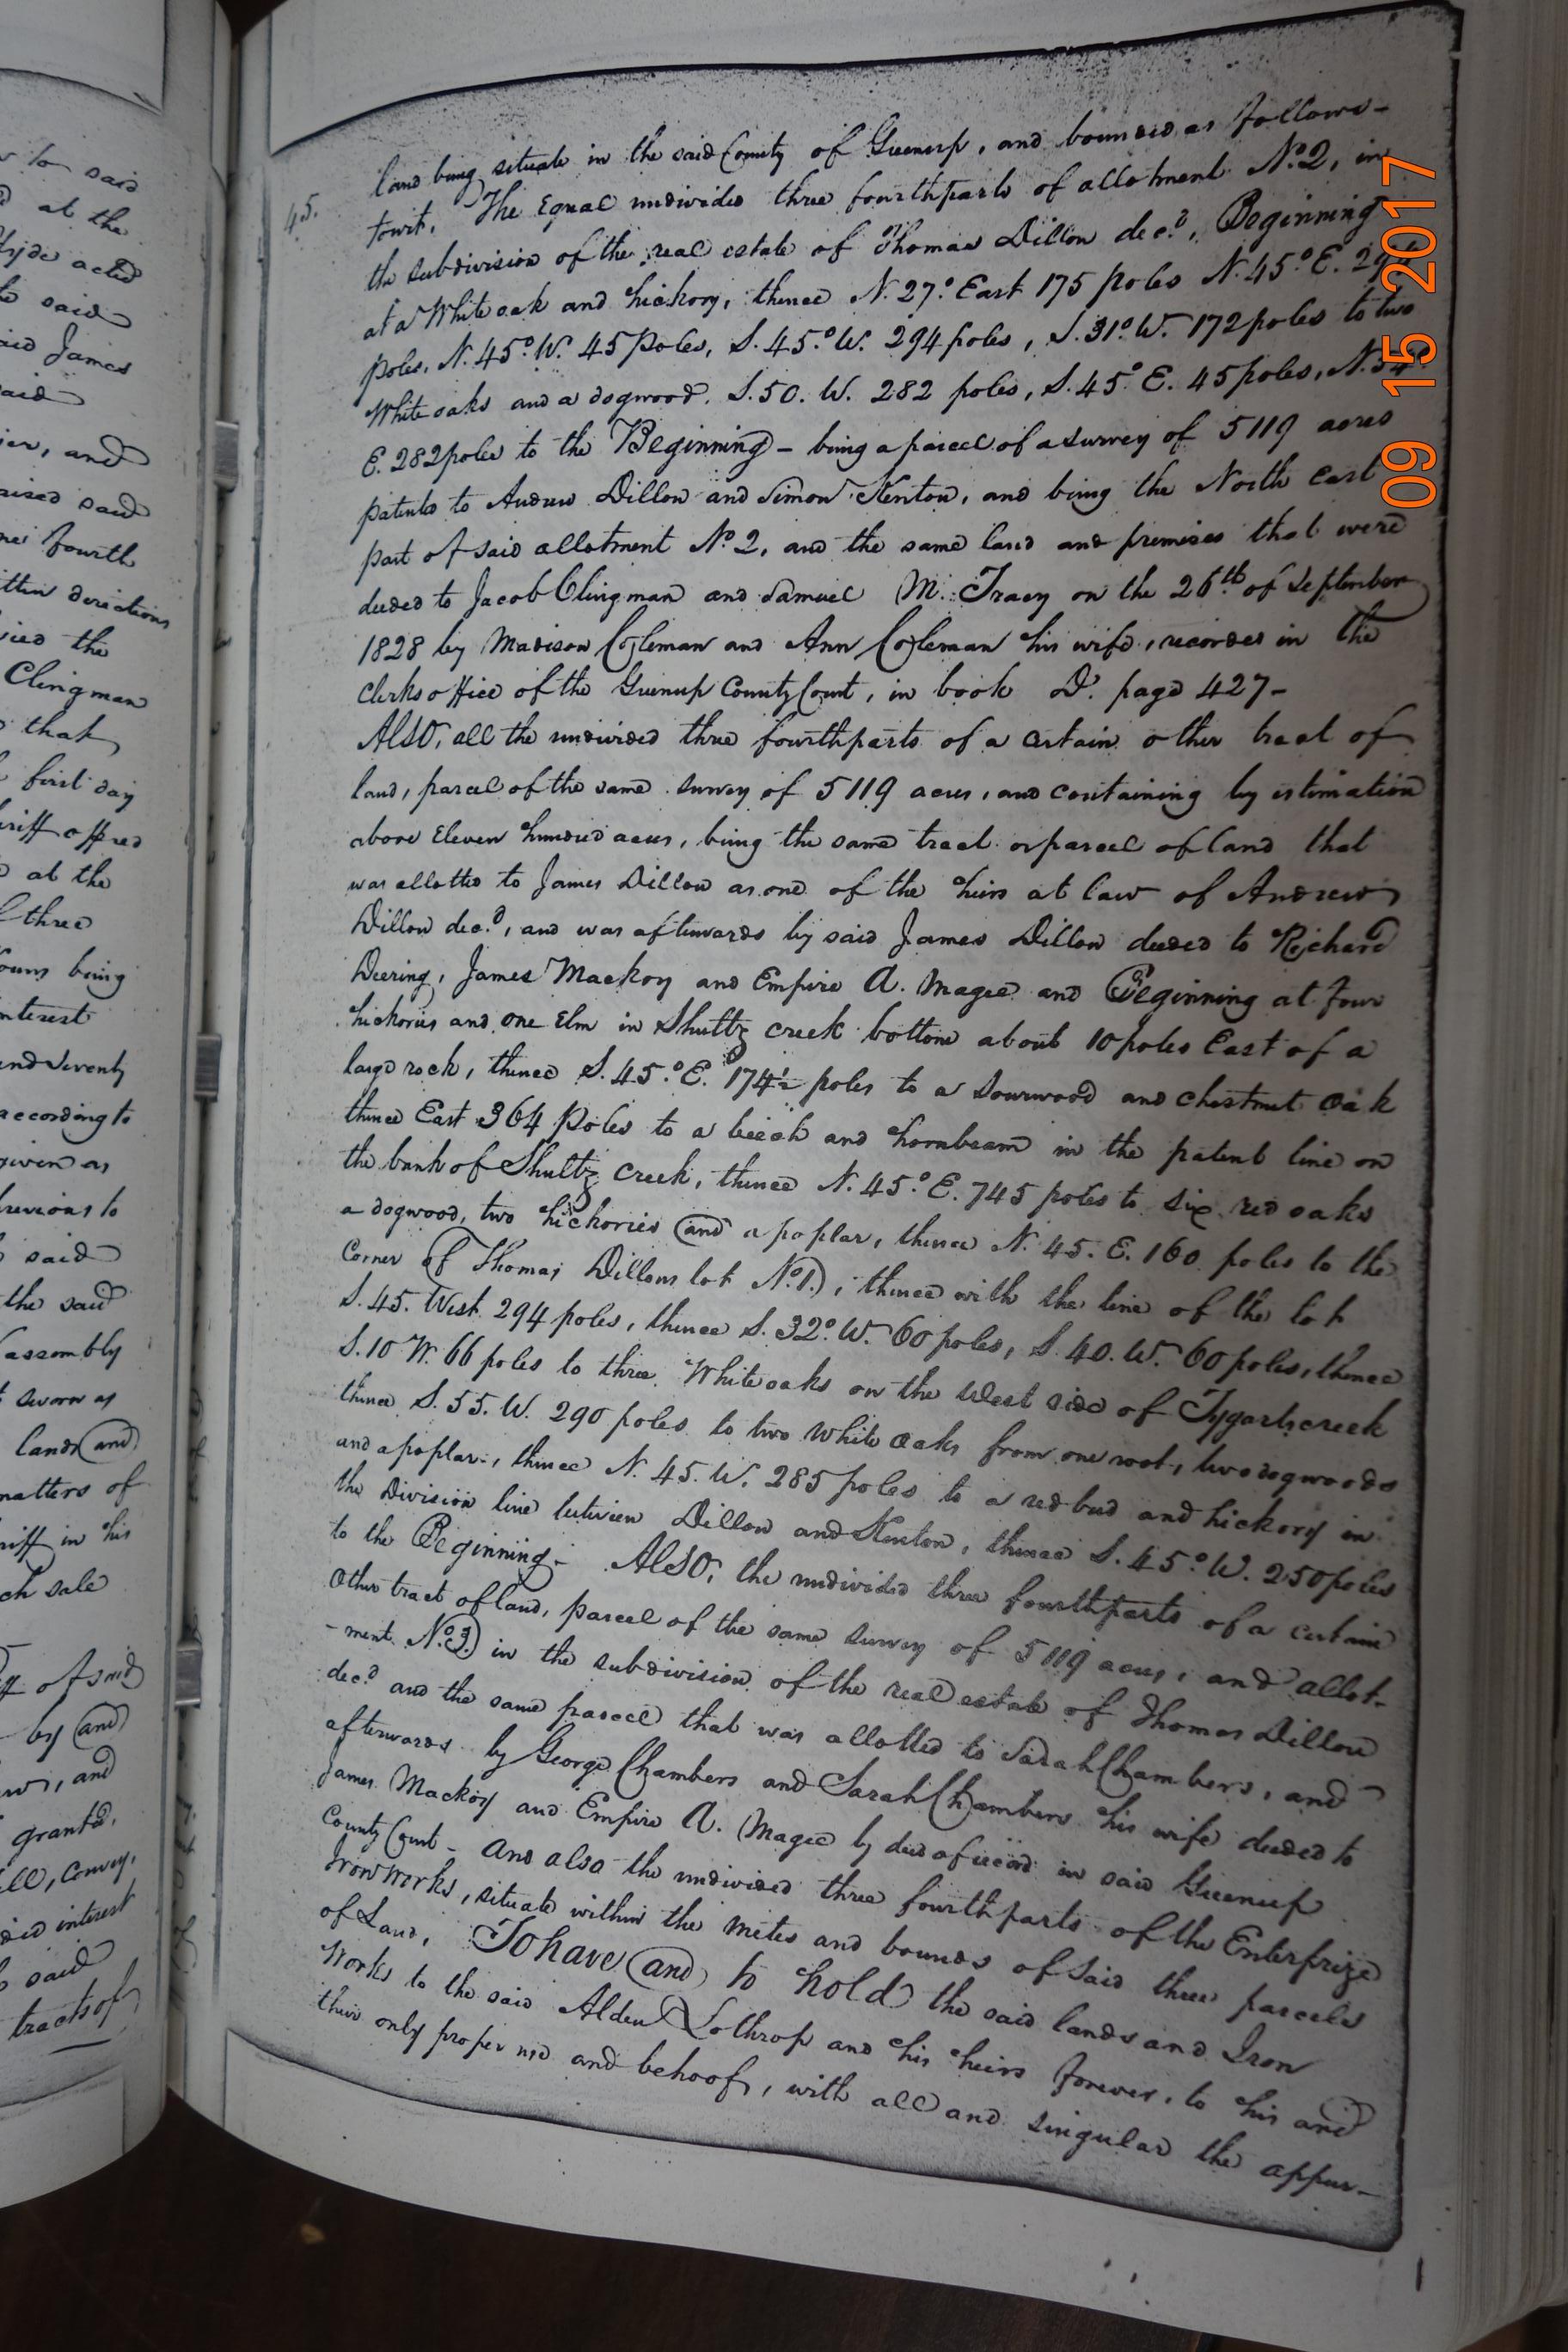 r to said
at the
Hyde acted
to said
said James
said
ier, and
rised said
ne fourth
ittin directions
ied the
Clingman
that
first day
eriff offered
at the
f three
ours being
nterest
and Seventy
according to
given as
previous to
said
the said
assembly
sworn as
lands and
matters of
riff in his
ch sale
ff of said
by and
w, and
grantd,
ell, convey,
did interest
said
tracts of
45.
land being situate in the said County of Greenup, and bounded as follows-
towit, The Equal undivided three fourth parts of allotment No. 2, in
the subdivision of the real estate of Thomas Dillon decd, Beginning
at a White oak and hickory, thence N. 27° East 175 poles N. 45° E. 294
poles, N. 45° W. 45 Poles, S. 45° W. 294 poles, S. 31° W. 172 poles to two
White oaks and a dogwood, S. 50. W. 282 poles, S. 45° E. 45 poles, N. 54
E. 282 poles to the Beginning - being a parcel of a survey of 5119 acres
patented to Andrew Dillon and Simon Kenton, and being the North east
part of said allotment No. 2, and the same land and premises that were
deeded to Jacob Clingman and Samuel M. Tracy on the 26th of September
1828 by Madison Coleman and Ann Coleman his wife, recorded in the
Clerks office of the Greenup County Court, in book D. page 427-
Also, all the undivided three fourth parts of a certain other tract of
land, parcel of the same survey of 5119 acres, and containing by estimation
above Eleven hundred acres, being the same tract or parcel of land that
was allotted to James Dillon as one of the heirs at law of Andrew
Dillon decd, and was afterwards by said James Dillon deeded to Richard
Deering, James Mackoy and Empire A. Magee and Beginning at four
hickories and one Elm in Shultz creek bottom about 10 poles East of a
large rock, thence S. 45° E. 174½ poles to a Sourwood and chestnut oak
thence East 364 Poles to a beech and hornbeam in the patent line on
the bank of Shultz Creek, thence N. 45° E. 745 poles to six red oaks
a dogwood, two hickories and a poplar, thence N. 45. E. 160 poles to the
Corner of Thomas Dillons lot No. 1.), thence with the line of the lot
S. 45. West 294 poles, thence S. 32° W. 60 poles, S. 40. W. 60 poles, thence
S. 10 W. 66 poles to three White oaks on the West side of Tygarts creek
thence S. 55. W. 290 poles to two White Oaks from one root, two dogwoods
and a poplar, thence N. 45. W. 285 poles to a red bud and hickory in
the Division line between Dillon and Kenton, thence S. 45° W. 250 poles
to the Beginning- Also, the undivided three fourth parts of a certain
Other tract of land, parcel of the same survey of 5119 acres, and allot-
-ment No. 3.) in the subdivision of the real estate of Thomas Dillon
decd and the same parcel that was allotted to Sarah Chambers, and
afterwards by George Chambers and Sarah Chambers his wife deeded to
James Mackoy and Empire A. Magee by deed of record in said Greenup
County Court - And also the undivided three fourth parts of the Enterprize
Iron works, situate within the metes and bounds of said three parcels
of Land, To have and to hold the said lands and Iron
Works to the said Alden Lothrop and his heirs forever, to his and
their only proper use and behoof, with all and singular the appur-
09 15 2017